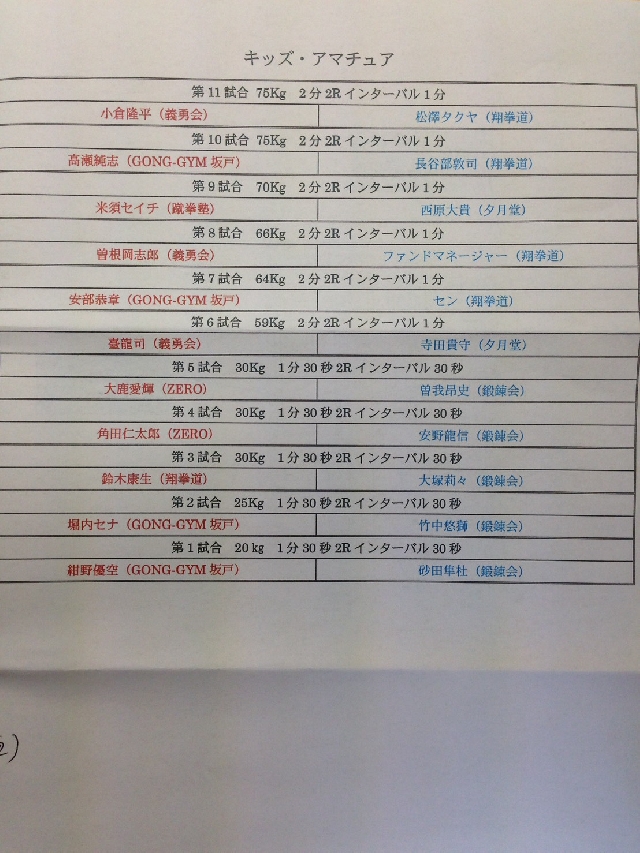 キッズ・アマチュア
第11試合 75Kg 2分2Rインターバル1分
小倉隆平（義勇会） 松澤タクヤ（翔拳道）
第10試合 75Kg 2分2Rインターバル1分
高瀬純志（GONG-GYM坂戸） 長谷部敦司（翔拳道）
第9試合 70Kg 2分2Rインターバル1分
米須セイチ（蹴拳塾） 西原大貴（夕月堂）
第8試合 66Kg 2分2Rインターバル1分
曽根岡志郎（義勇会） ファンドマネージャー（翔拳道）
第7試合 64Kg 2分2Rインターバル1分
安部恭章（GONG-GYM坂戸） セン（翔拳道）
第6試合 59Kg 2分2Rインターバル1分
臺龍司（義勇会） 寺田貴守（夕月堂）
第5試合 30Kg 1分30秒2Rインターバル30秒
大鹿愛輝（ZERO） 曽我昂史（鍛錬会）
第4試合 30Kg 1分30秒2Rインターバル30秒
角田仁太郎（ZERO） 安野龍信（鍛錬会）
第3試合 30Kg 1分30秒2Rインターバル30秒
鈴木康生（翔拳道） 大塚莉々（鍛錬会）
第2試合 25Kg 1分30秒2Rインターバル30秒
堀内セナ（GONG-GYM坂戸） 竹中悠獅（鍛錬会）
第1試合 20kg 1分30秒2Rインターバル30秒
紺野優空（GONG-GYM坂戸） 砂田隼杜（鍛錬会）